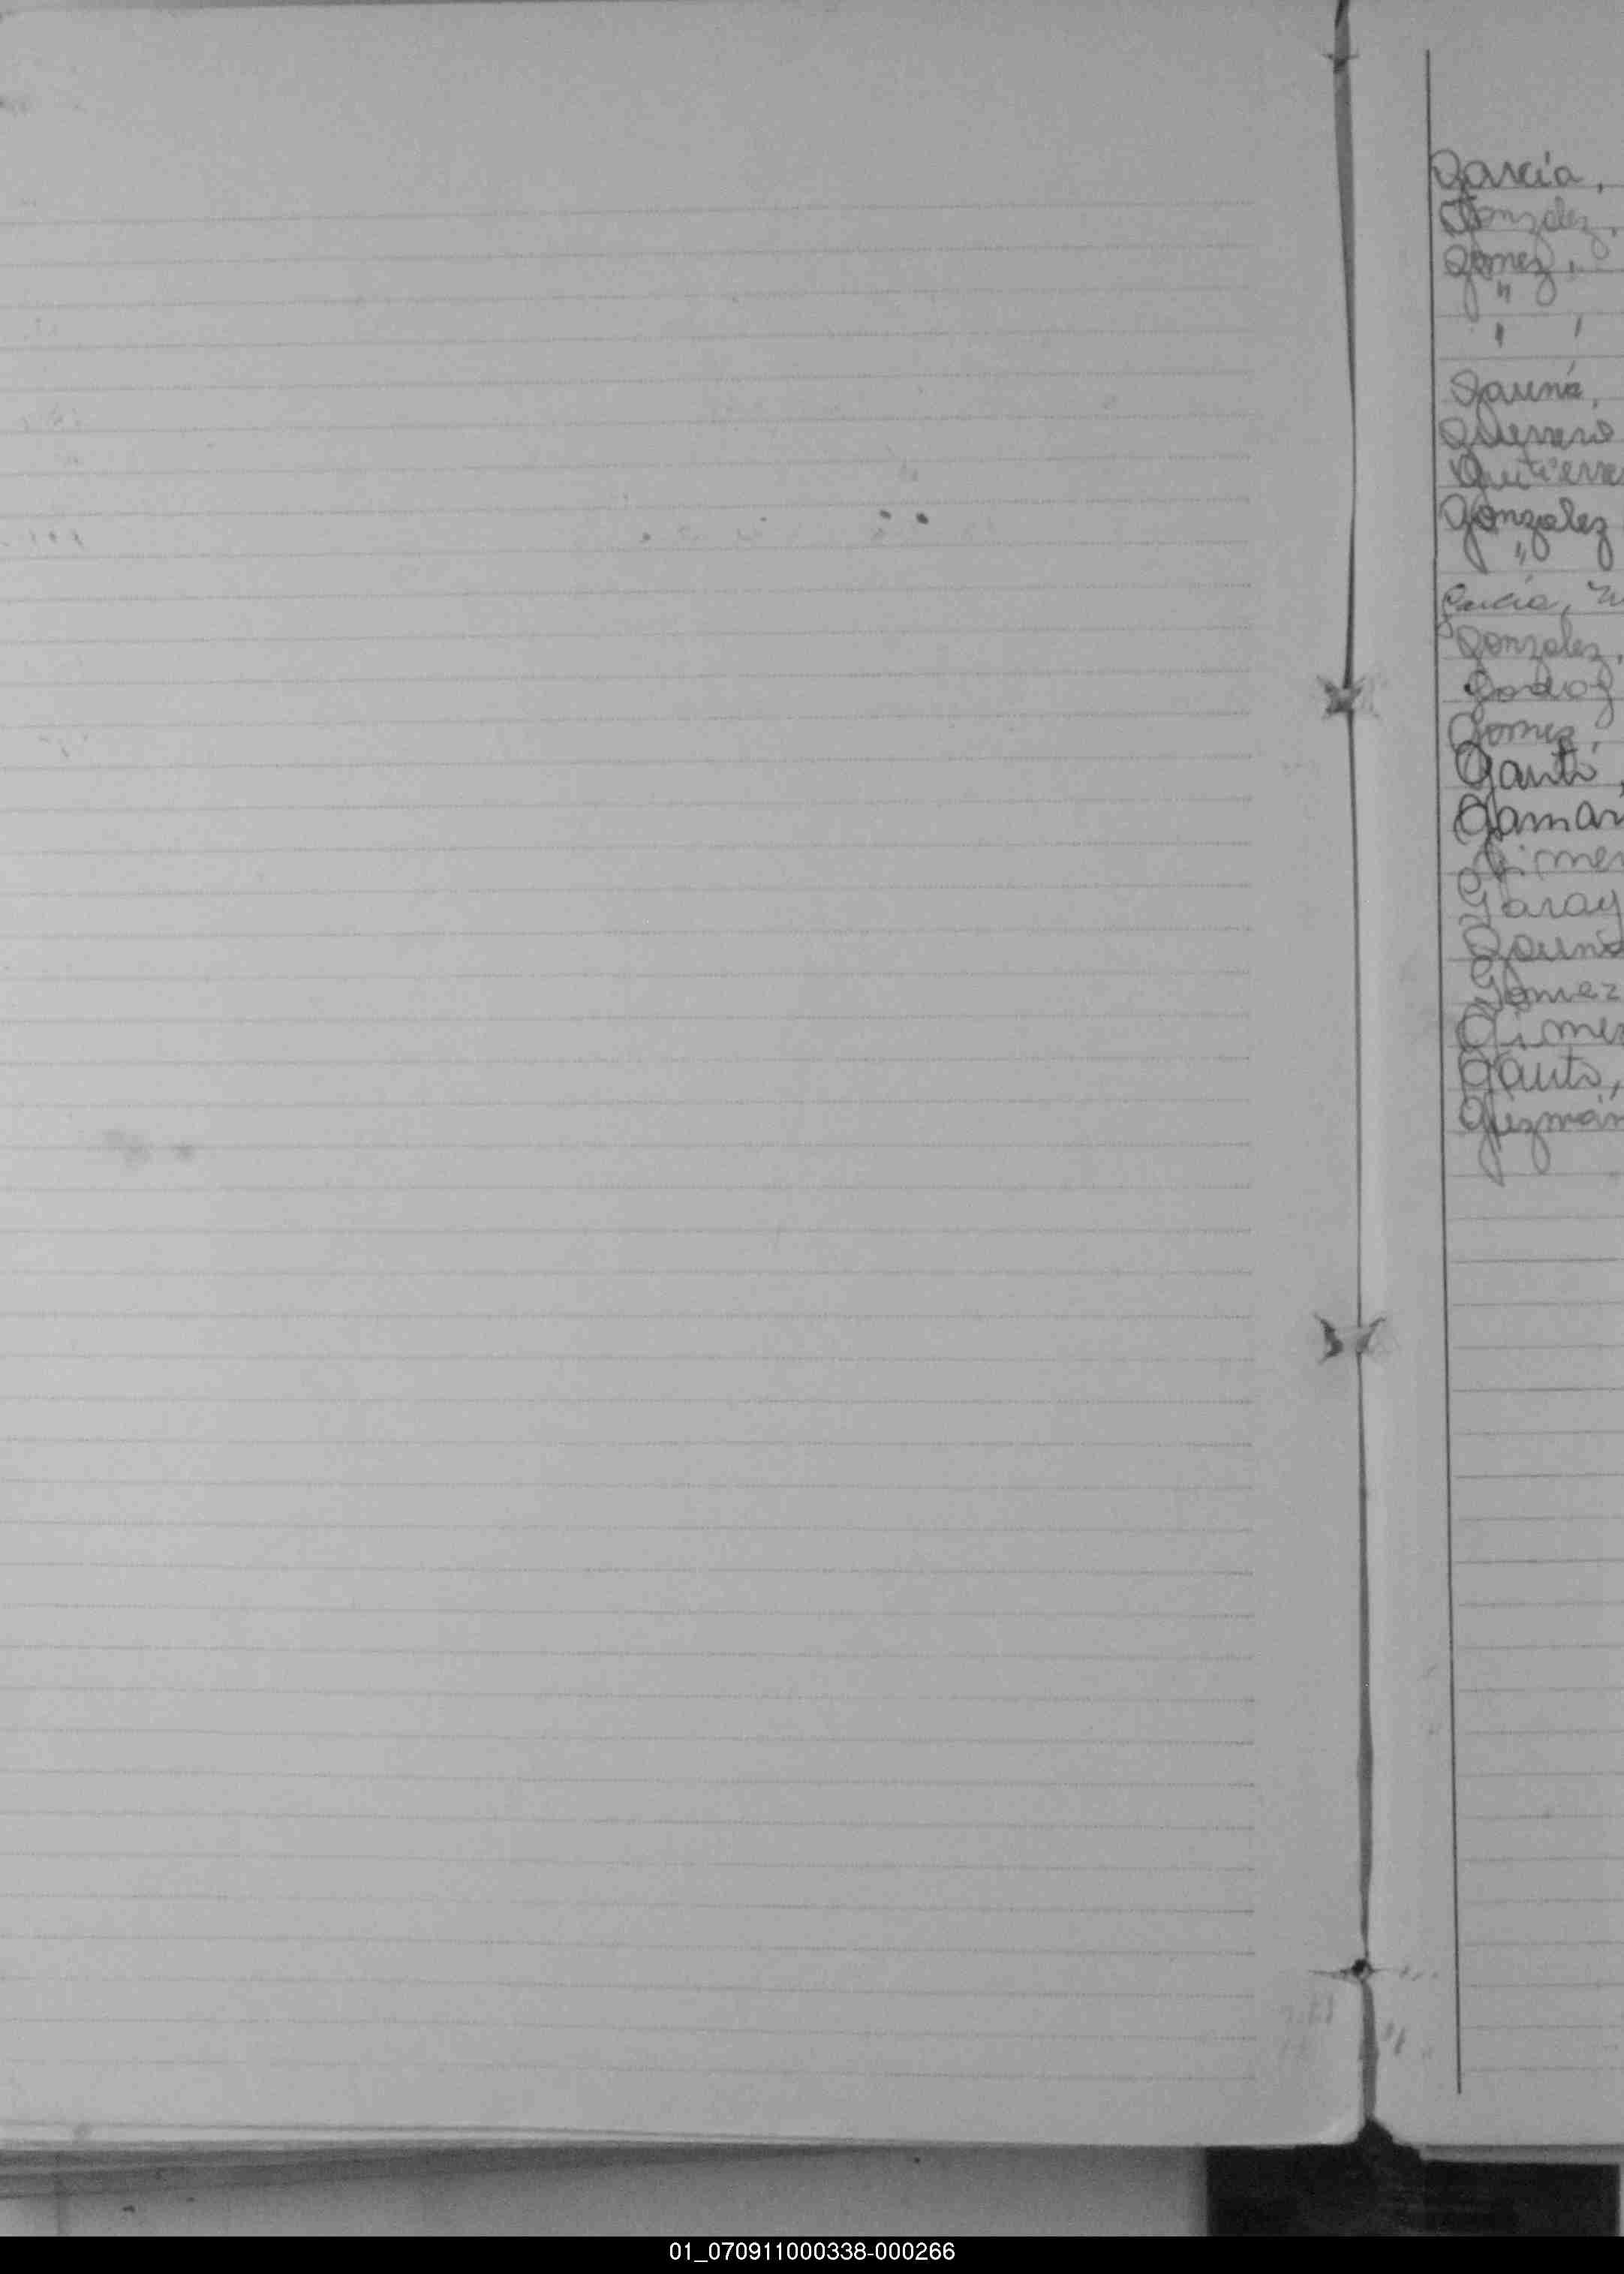 Garcia,
Gonzalez,
Gomez,
"
" '
Gauna,
Guerrero
Gutierre
Gonzalez
"
Garcia,
Gonzalez,
Godoy
Gomez,
Gauto,
Gamar
Gimen
Garay
Gauna
Gomez
Gimen
Gauto,
Guzmán
01_070911000338-000266